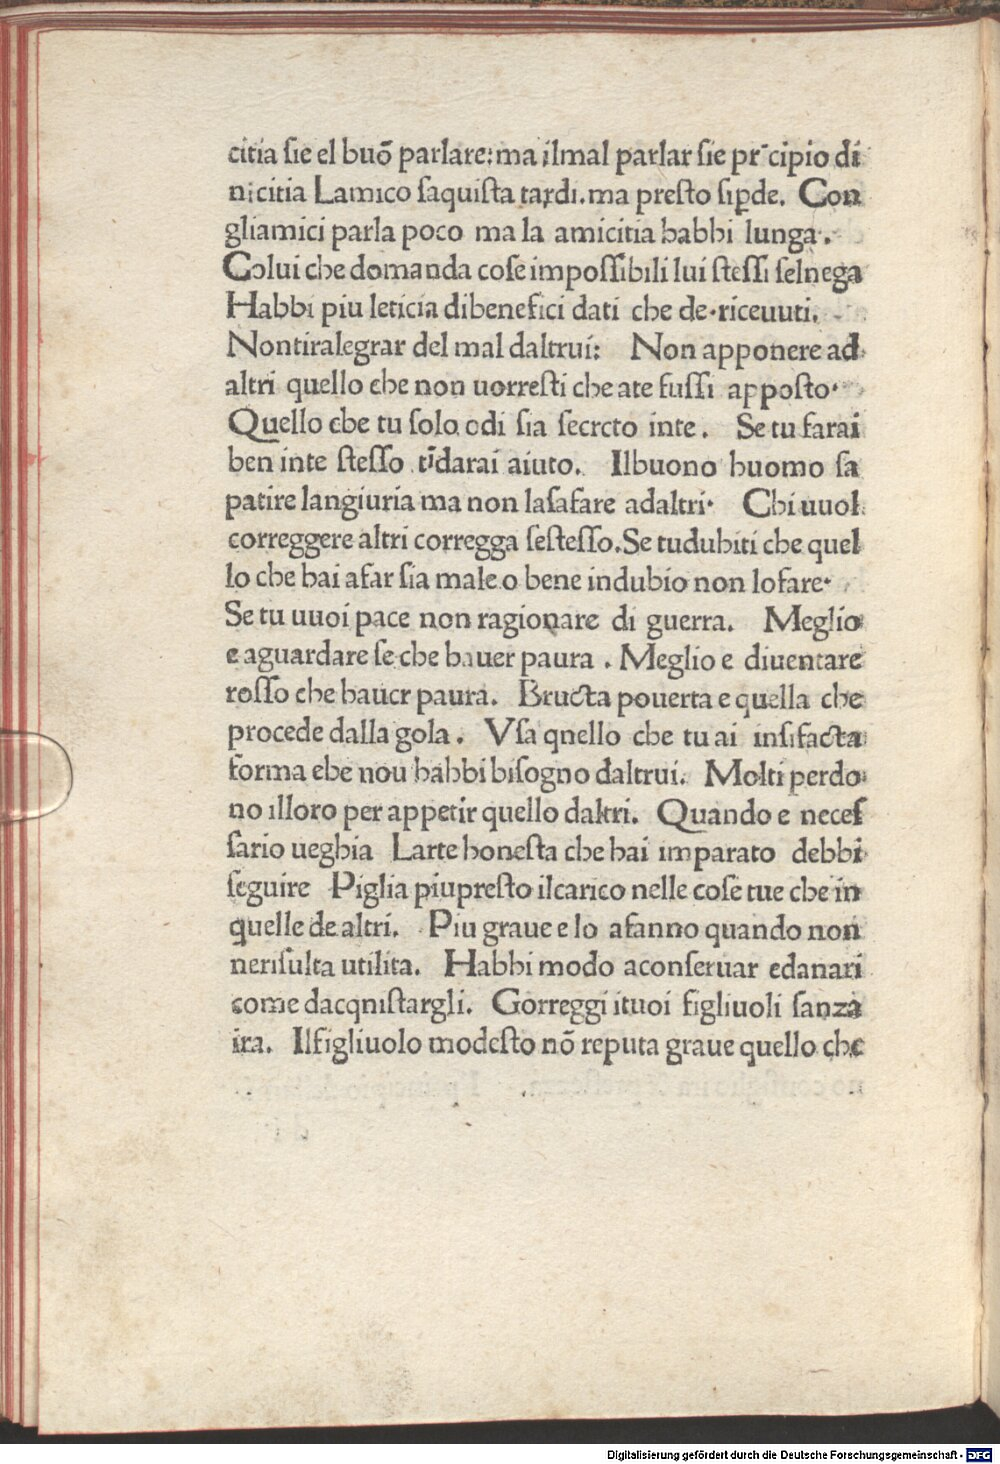 citia ſie el buõ parlare: ma ilmal parlar ſie pr̄cipio di
nicitia Lamico ſaquiſta tardi. ma preſto ſip̲de. Con
gliamici parla poco ma la amicitia habbi lunga.
Colui che domanda coſe impoſſibili lui ſteſſi ſelnega
Habbi piu leticia dibenefici dati che de·riceuuti.
Nontiralegrar del mal daltrui: Non apponere ad
altri quello che non uorreſti che ate fuſſi appoſto·
Quello che tu ſolo odi ſia ſecreto inte. Se tu farai
ben inte ſteſſo tīdarai aiuto. Ilbuono huomo ſa
patire langiuria ma non laſafare adaltri· Chi uuol
correggere altri corregga ſeſteſſo. Se tudubiti che quel
lo che hai afar ſia male o bene indubio non lofare·
Se tu uuoi pace non ragionare di guerra. Meglio
e aguardare ſe che hauer paura. Meglio e diuentare
roſſo che hauer paura. Bructa pouerta e quella che
procede dalla gola. Vſa qnello che tu ai inſifacta
forma che nou habbi biſogno daltrui. Molti perdo
no illoro per appetir quello daltri. Quando e neceſ
ſario ueghia Larte honeſta che hai imparato debbi
ſeguire Piglia piupreſto ilcarico nelle coſe tue che in
quelle de altri. Piu graue e lo afanno quando non
neriſulta utilita. Habbi modo aconſeruar edanari
come dacqniſtargli. Gorreggi ituoi figliuoli ſanza
ira. Ilfigliuolo modeſto nõ reputa graue quello che
Digitalisierung gefördert durch die Deutsche Forschungsgemeinschaft - DFG